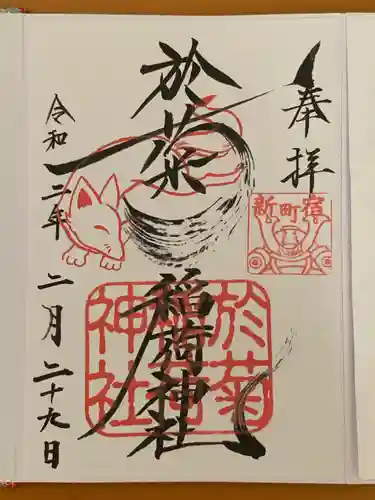 奉拝
新町宿
於菊
稲荷神社
於菊
稲荷
神社
令和二年二月二十九日